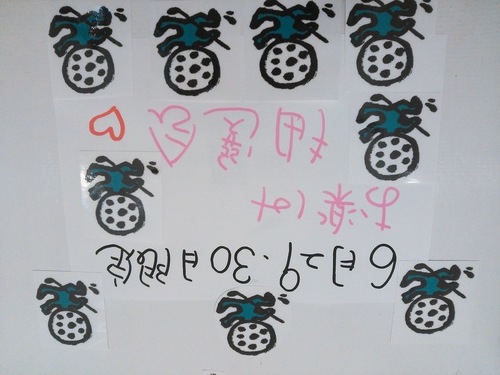 6月29.30日限定
お楽しみ
抽選会♡